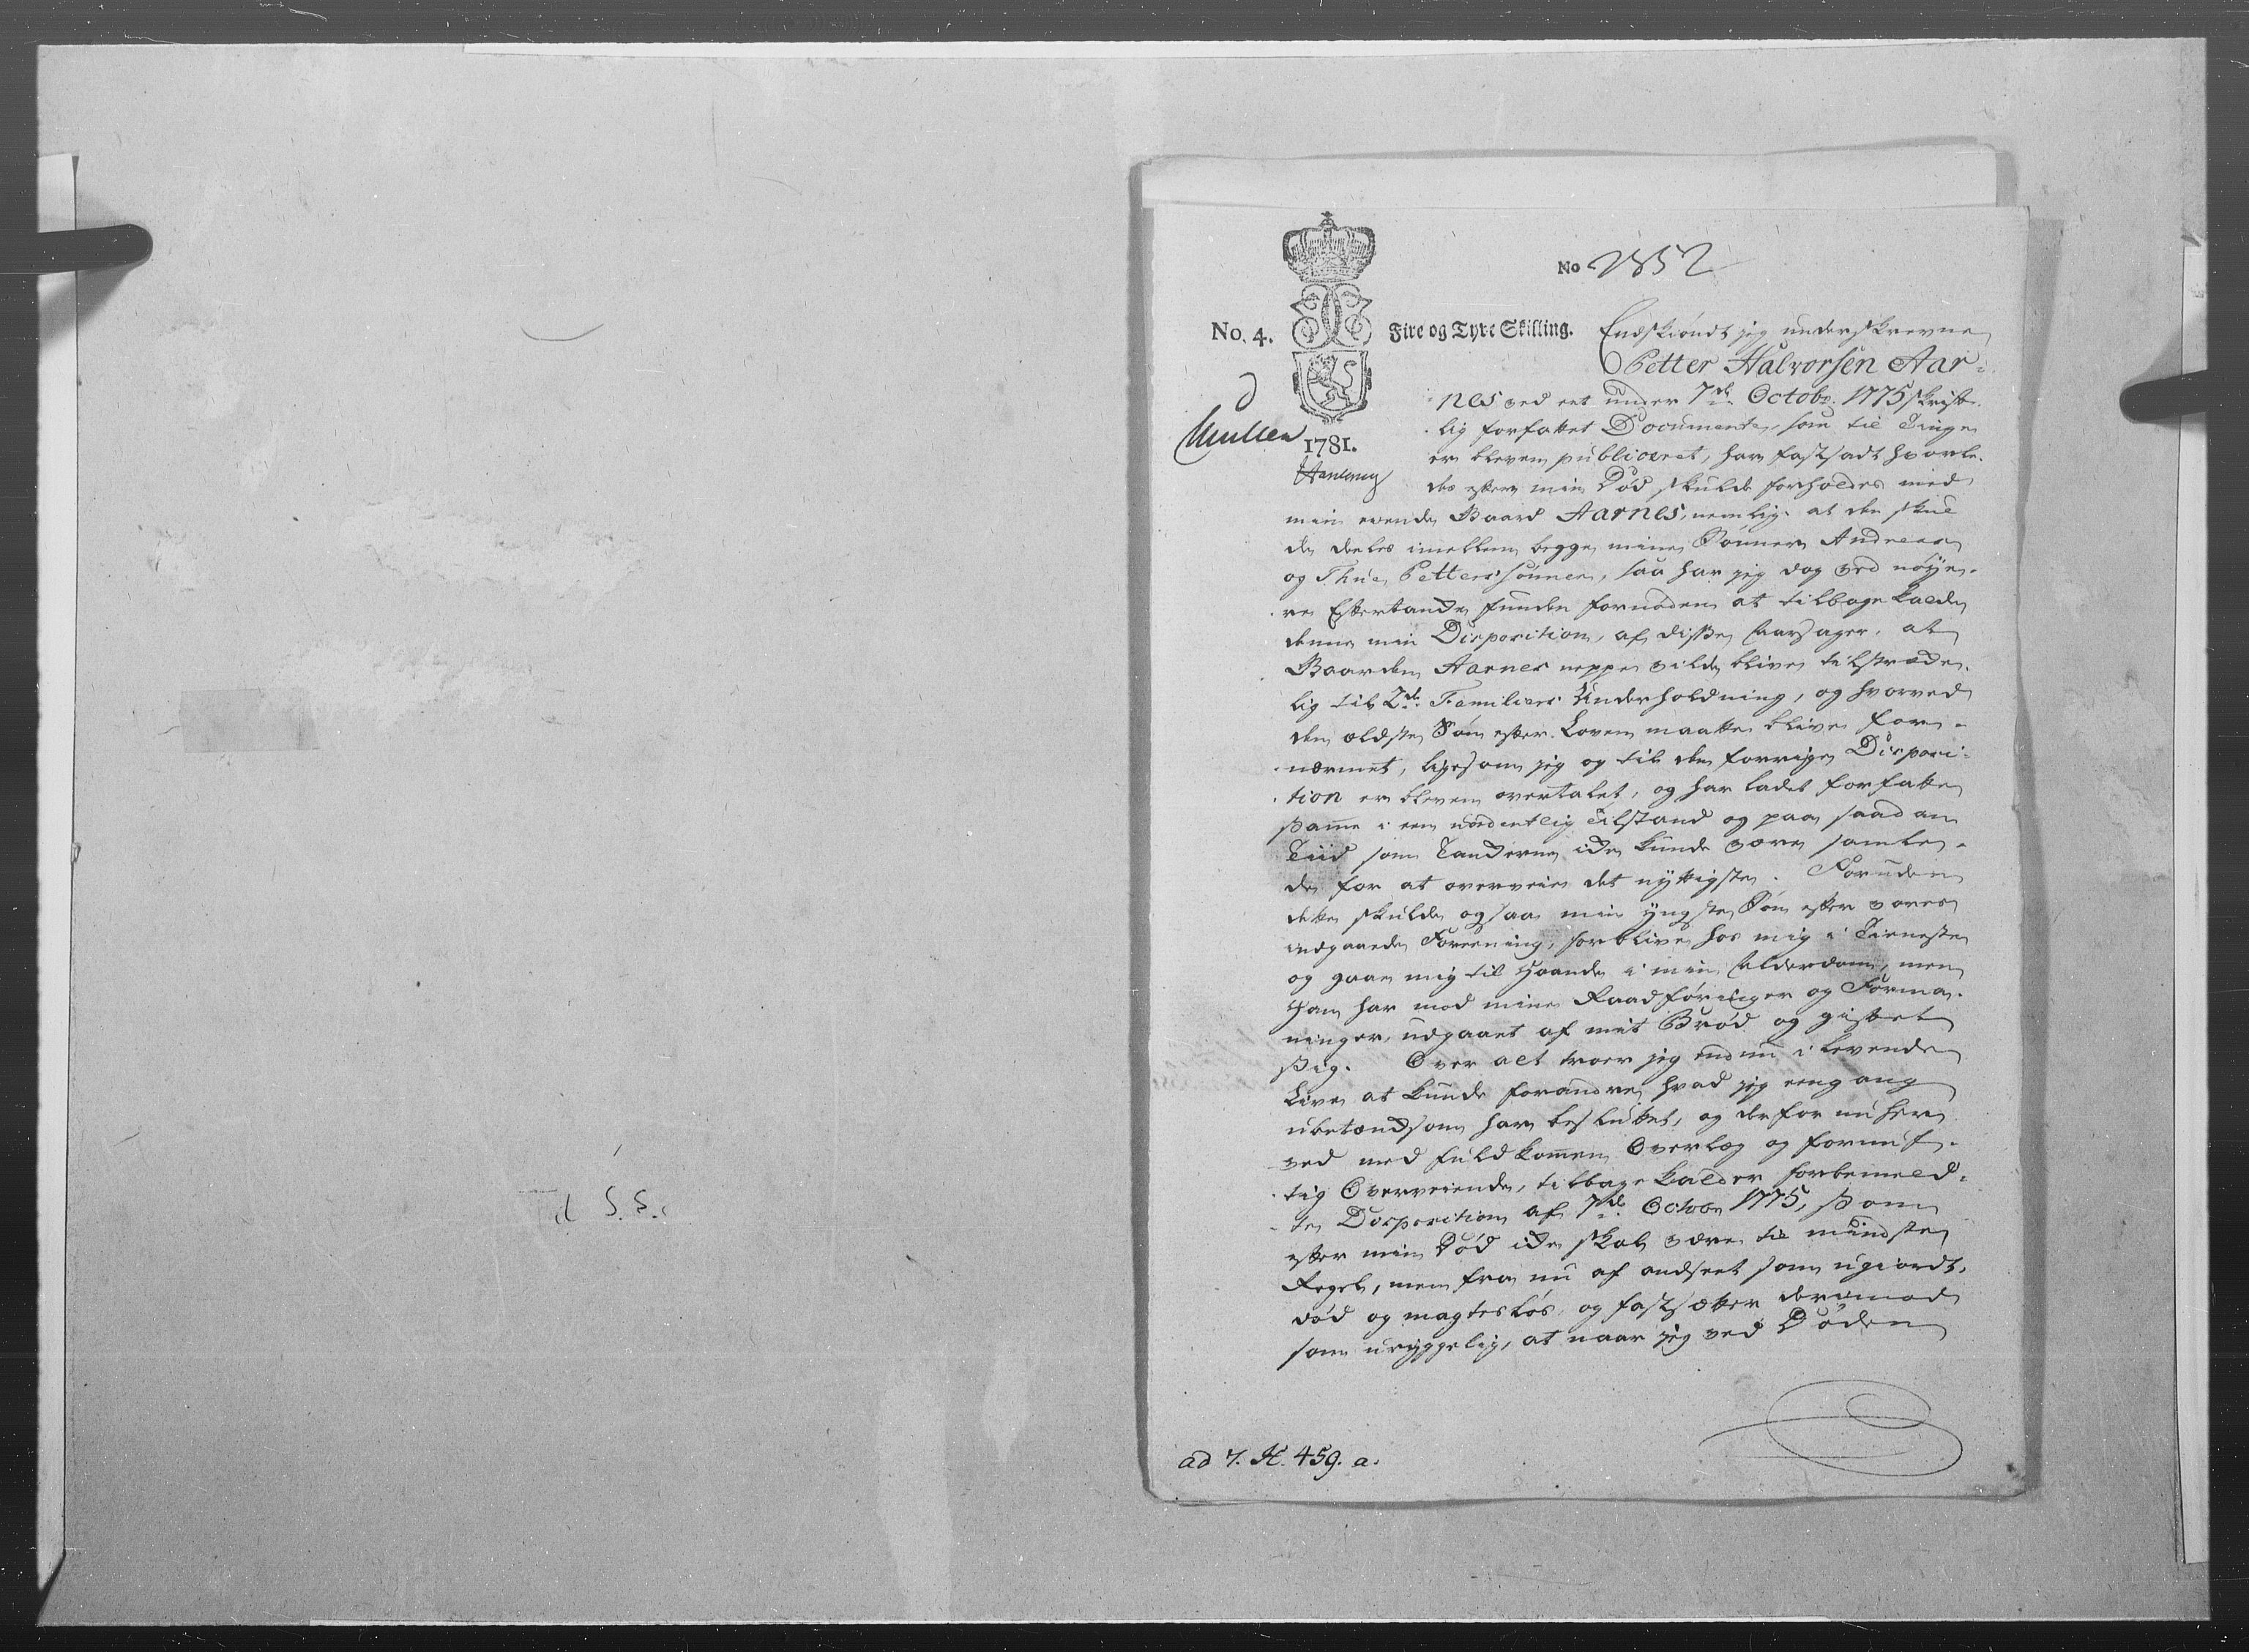 Til S. S.
No 2852
No. 4. Fire og Tyve Skilling. Endskiøndt jeg underskrevne
Petter Halvorsen Aar-
1781.
nes ved eet under 7de Octobr. 1775 skrift-
lig forfattet Document, som til Tinge
er bleven publiceret, har fastsadt hvorle-
des efter min Død skulde forholdes med
min eyende Gaard Aarnes, nemlig: at den skul-
de deeles imellem begge mine Sønner Andreas
og Thue Petterssønner, saa har jeg dog ved nøye-
re Eftertanke funden fornøden at tilbage kalde
denne min Disposition, af disse Aarsager, at
Gaarden Aarnes neppe vilde blive tilstræcke-
lig til 2de Familiers Underholdning, og hvorved
den ældste Søn efter Loven maatte blive for-
nærmet, ligesom jeg og til den forrige Disposi-
tion er bleven overtalet, og har ladet forfatte
samme i een uordentlig Tilstand og paa saadan
Tiid som Tankerne icke kunde være samle-
de for at overveie det nyttigste. Foruden
dette skulde ogsaa min yngste Søn efter vores
indgaaede Foreening, forblive hos mig i Tieneste
og gaae mig til Haande i min Alderdom, men
Han har mod mine Raadføringer og Forma-
ninger, udgaaet af mit Brød og giftet
sig. Over alt troer jeg endnu i levende
Live at kunde forandre, hvad jeg eengang
ubetænksom har besluttet, og derfor nu her-
ved med fuldkommen Overlæg og fornuf-
tig Overveiende, tilbage kalder forbemeld-
te Disposition af 7de Octobr 1775, som
efter min Død icke skal være til mindste
Regel, men fra nu af andseet som ugiordt,
død og magtesløs, og fastsætter derimod
som uryggelig, at naar jeg ved Døden
ad 7. H. 459. a.